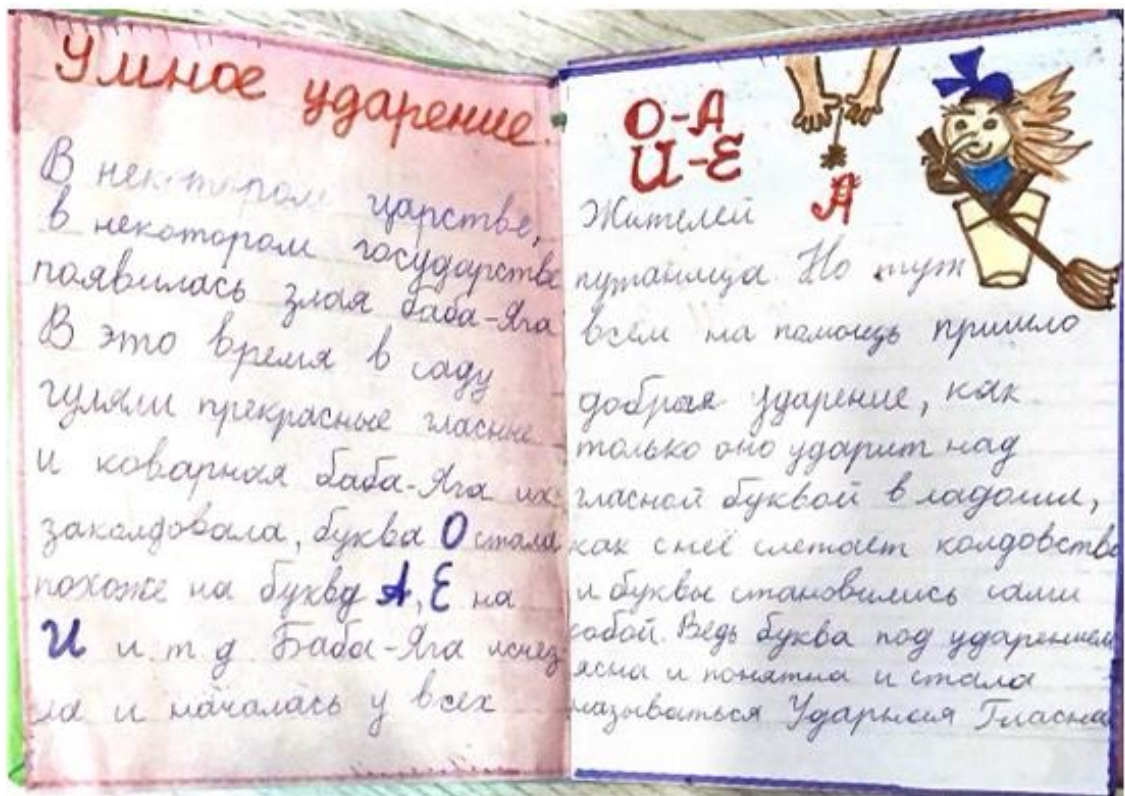 Умное ударение.
В некотором царстве,
в некотором государстве
появилась злая баба-Яга
В это время в саду
гуляли прекрасные гласные
и коварная баба-Яга их
заколдовала, буква О стала
похоже на букву А, Е на
И и т д Баба-Яга исчез
ла и началась у всех
О-А
И-Е
А
Жителей
путаница. Но тут
всем на помощь пришло
добрая ударение, как
только оно ударит над
гласной буквой в ладоши,
как с неё слетает колдовство
и буквы становились сами
собой. Ведь буква под ударением
ясна и понятна и стала
называться Ударная Гласна